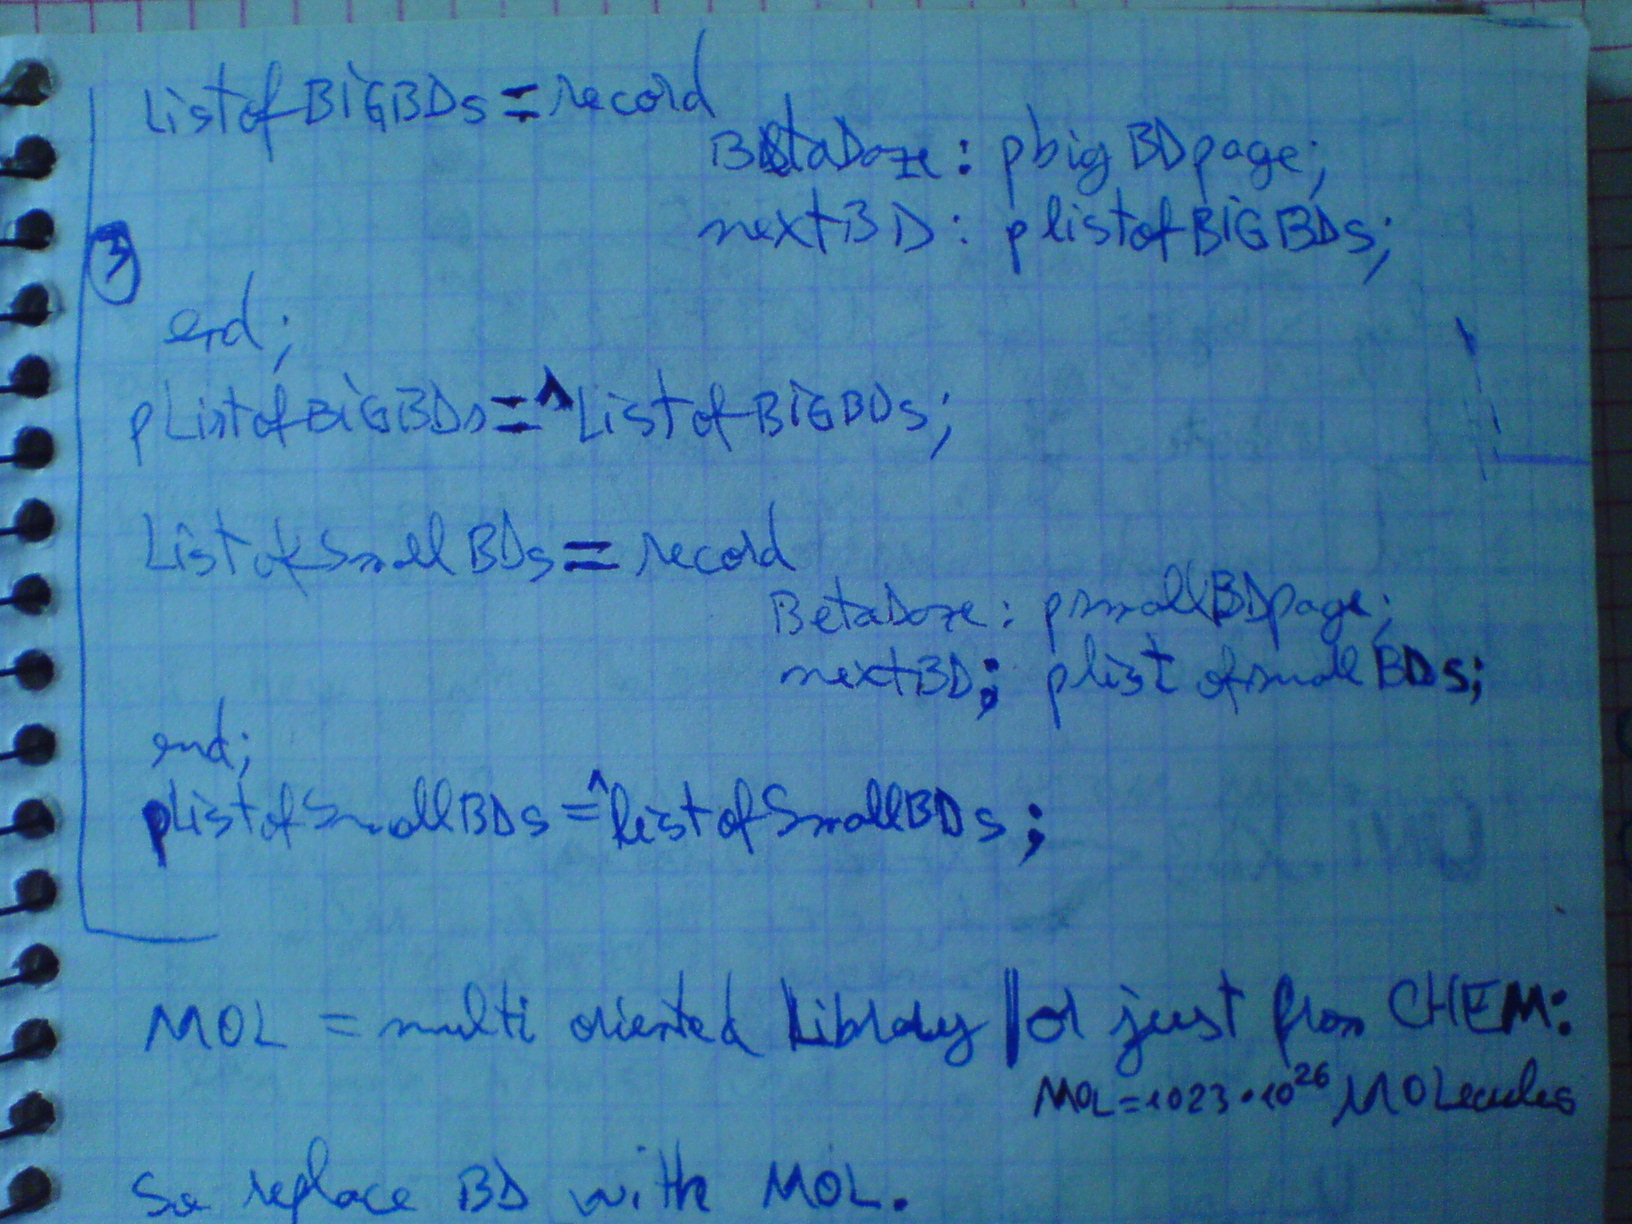 ListofBiGBDs = record
BetaDoze : pbigBDpage;
nextBD : plistofBiGBDs;
3
end;
pListofBiGBDs = ^ListofBiGBDs;
ListofSmallBDs = record
BetaDoze : psmallBDpage;
nextBD; plistofsmallBDs;
end;
pListofSmallBDs = ^listofSmallBDs;
MOL = multi oriented Library | or just from CHEM:
MOL = 1023 · 10^26 MOLecules
So replace BD with MOL.